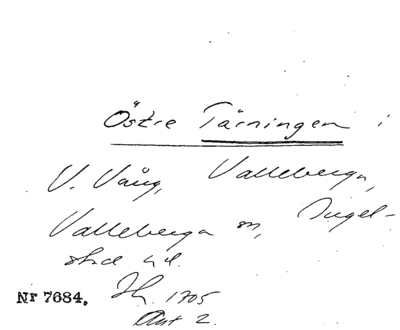 Östre Tärningen i
V. Vång, Valleberga,
Valleberga sn, Ingel-
stad hd.
Nr 7684. Jh. 1705
Akt 2.